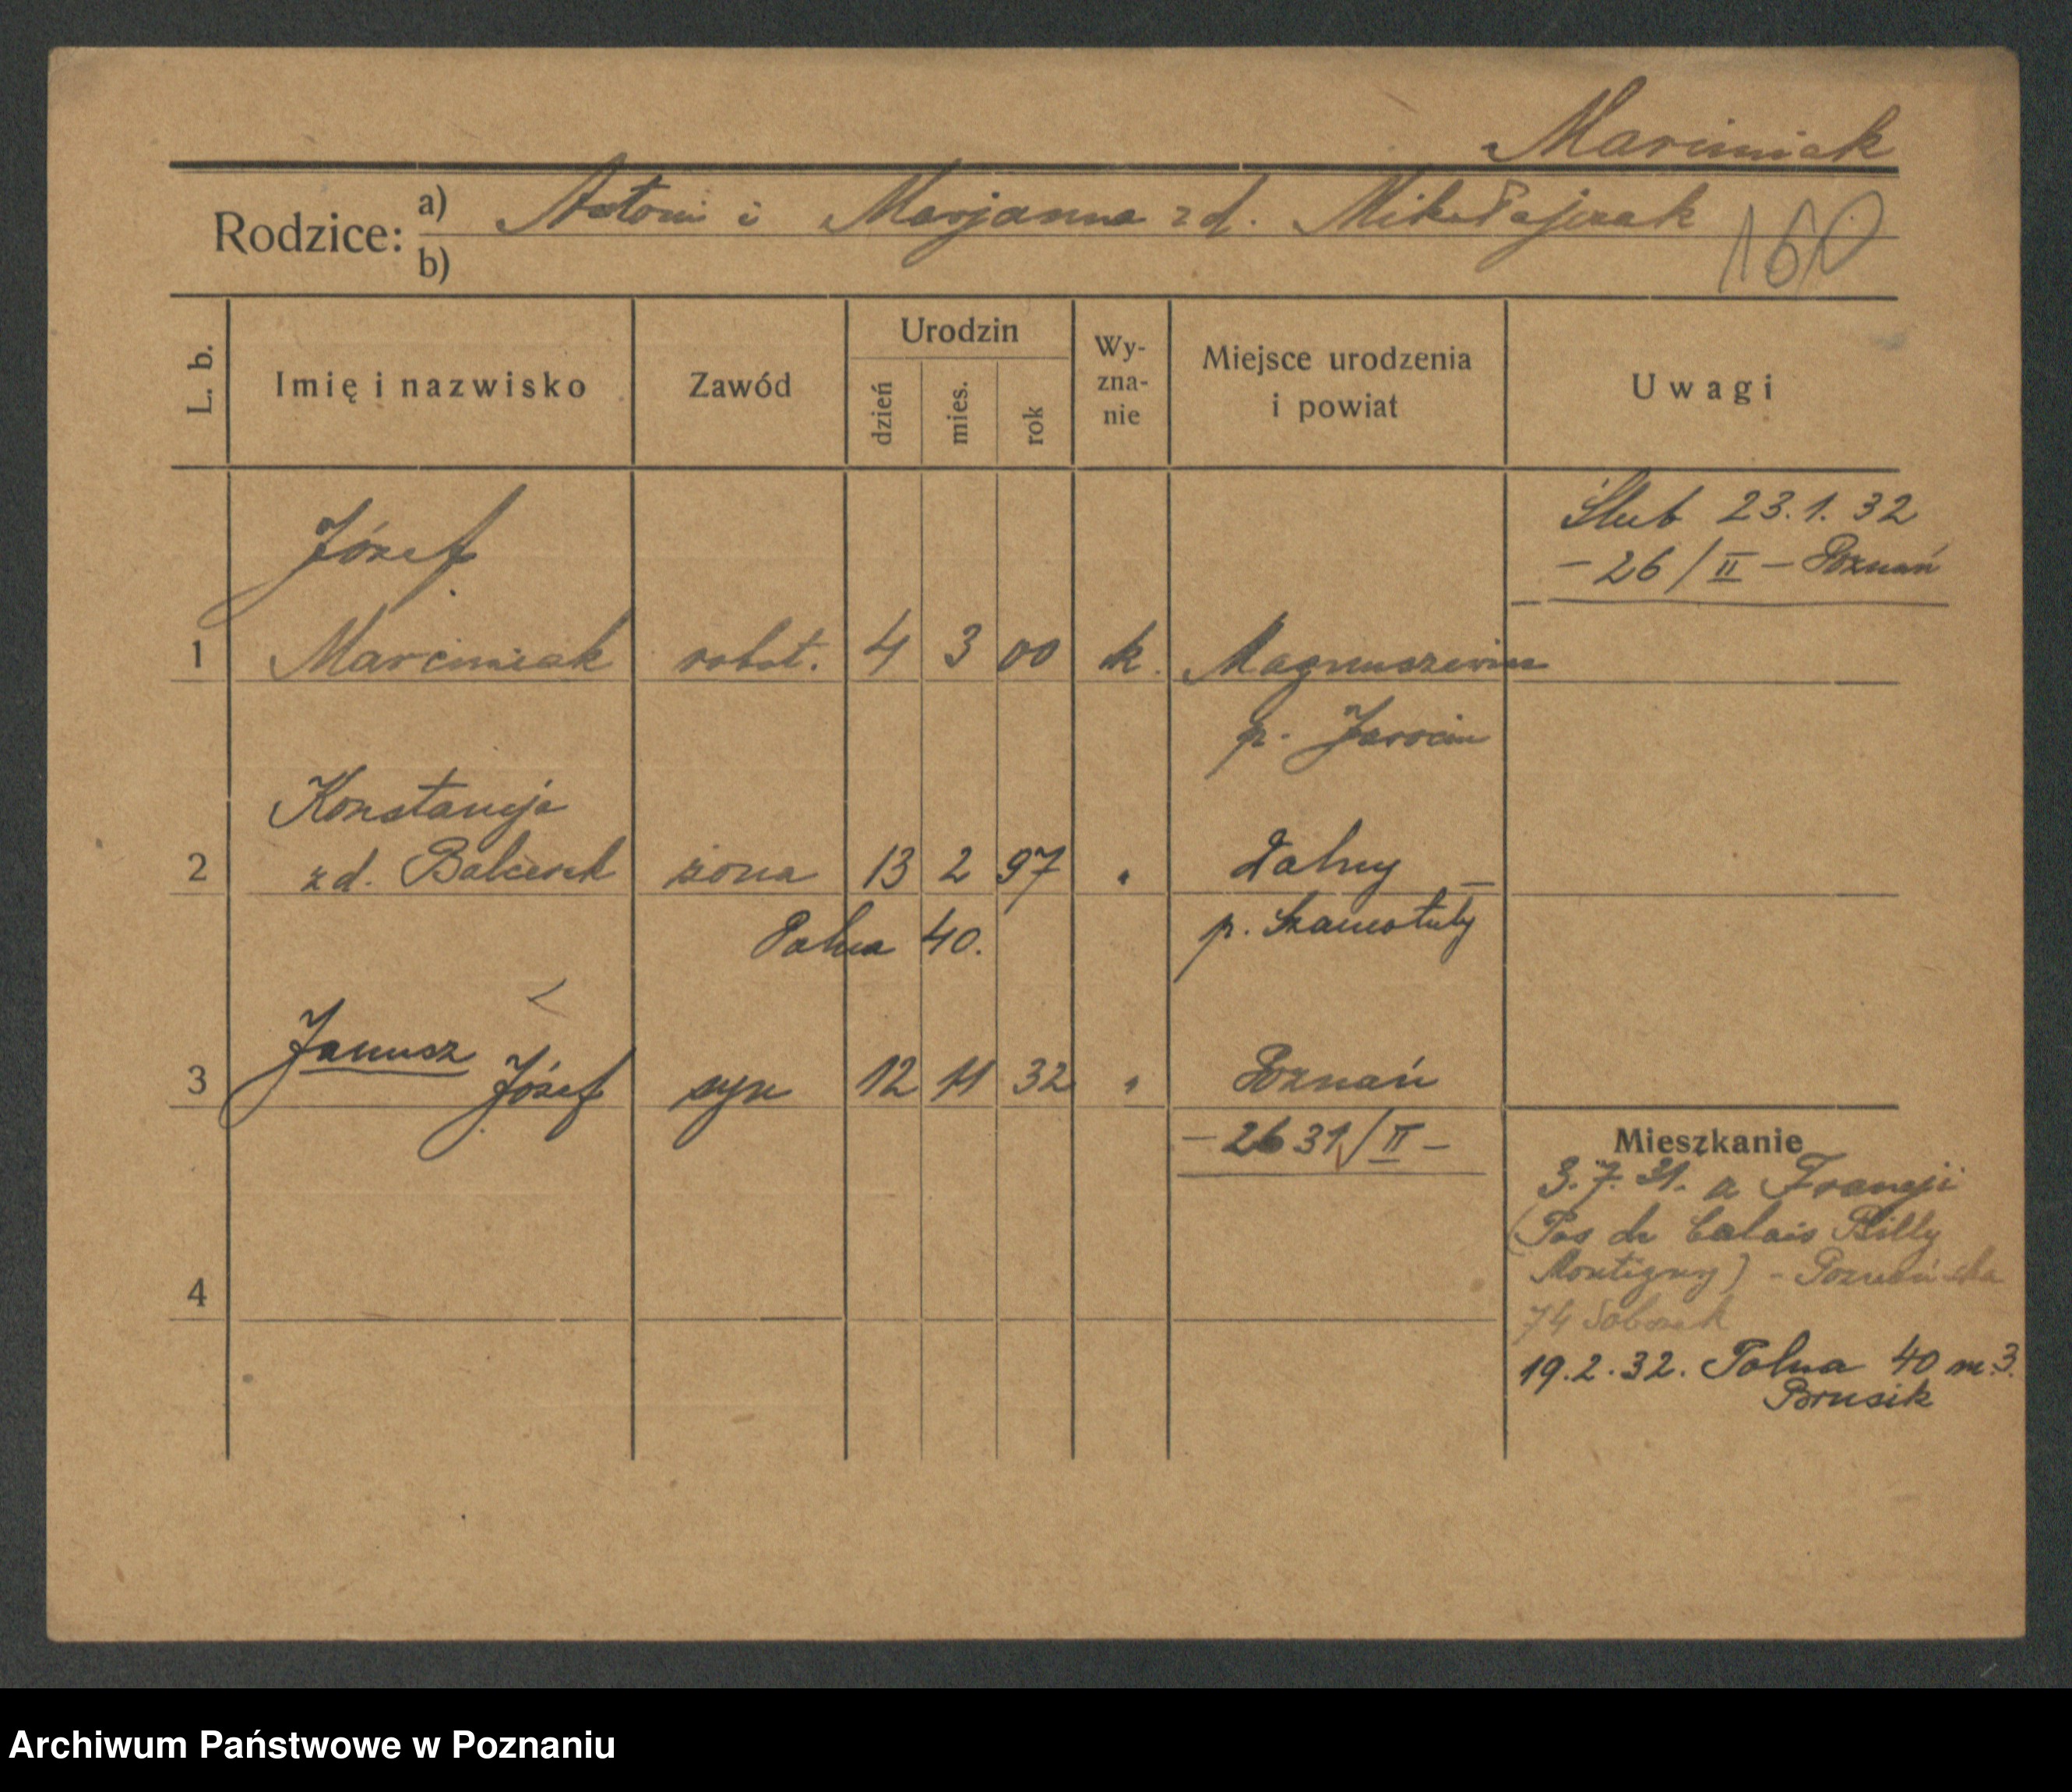 Marciniak
Rodzice: a) Antoni i Marjanna zd. Mikołajczak
b)
160
L. b.
Imię i nazwisko
Zawód
Urodzin
dzień
mies.
rok
Wy-
zna-
nie
Miejsce urodzenia
i powiat
Uwagi
Ślub 23.1.32
- 26/II - Poznań
Józef
1 Marciniak robot. 4 3 00 k. Magnuszewice
p. Jarocin
Konstancja
2 zd. Balcerek żona 13 2 97 " Dalny
p. Szamotuły
Polna 40.
Janusz
3 Józef syn 12 11 32 " Poznań
- 2631/II -
4
Mieszkanie
3.7.31. a Francji
(Pas de Calais Billy
Montigny) - Poznańska
74 Sobczak
19.2.32. Polna 40 m.3.
Brusik
Archiwum Państwowe w Poznaniu